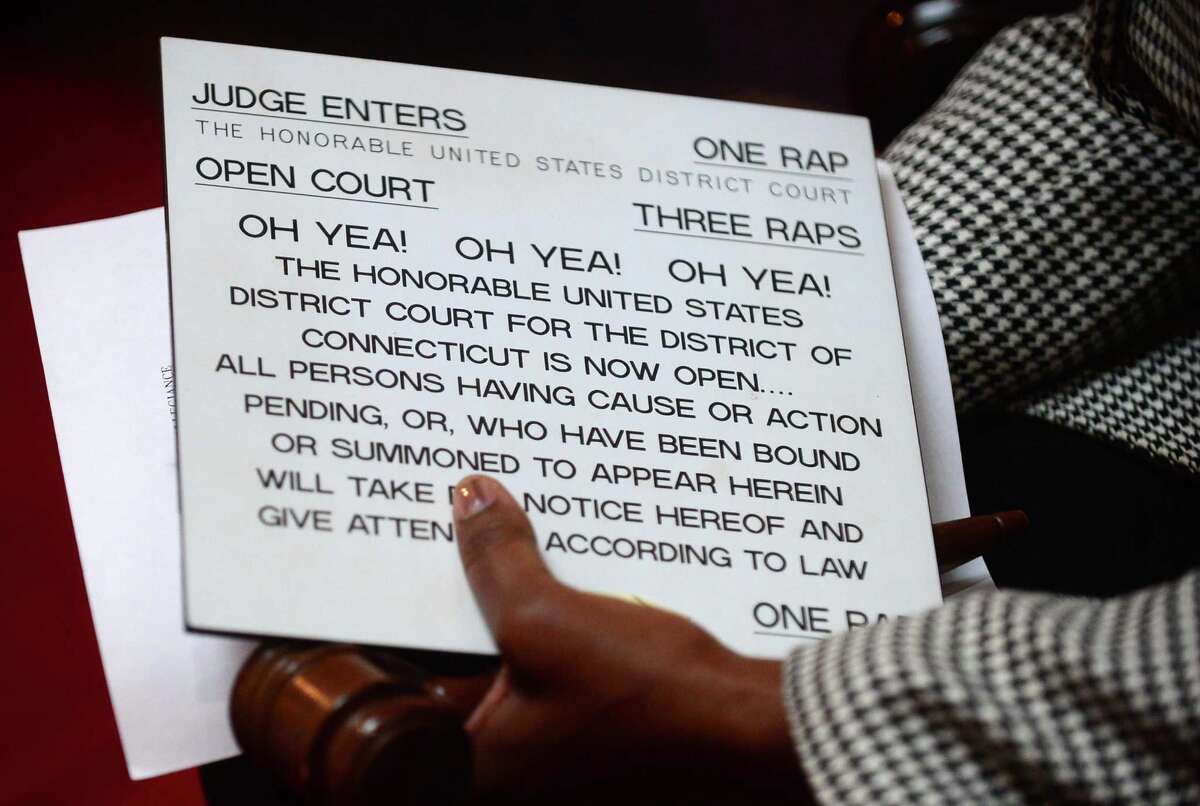 JUDGE ENTERS
ONE RAP
THE HONORABLE UNITED STATES DISTRICT COURT
OPEN COURT
THREE RAPS
OH YEA! OH YEA! OH YEA!
THE HONORABLE UNITED STATES
DISTRICT COURT FOR THE DISTRICT OF
CONNECTICUT IS NOW OPEN....
ALL PERSONS HAVING CAUSE OR ACTION
PENDING, OR, WHO HAVE BEEN BOUND
OR SUMMONED TO APPEAR HEREIN
WILL TAKE NOTICE HEREOF AND
GIVE ACCORDING TO LAW
ONE